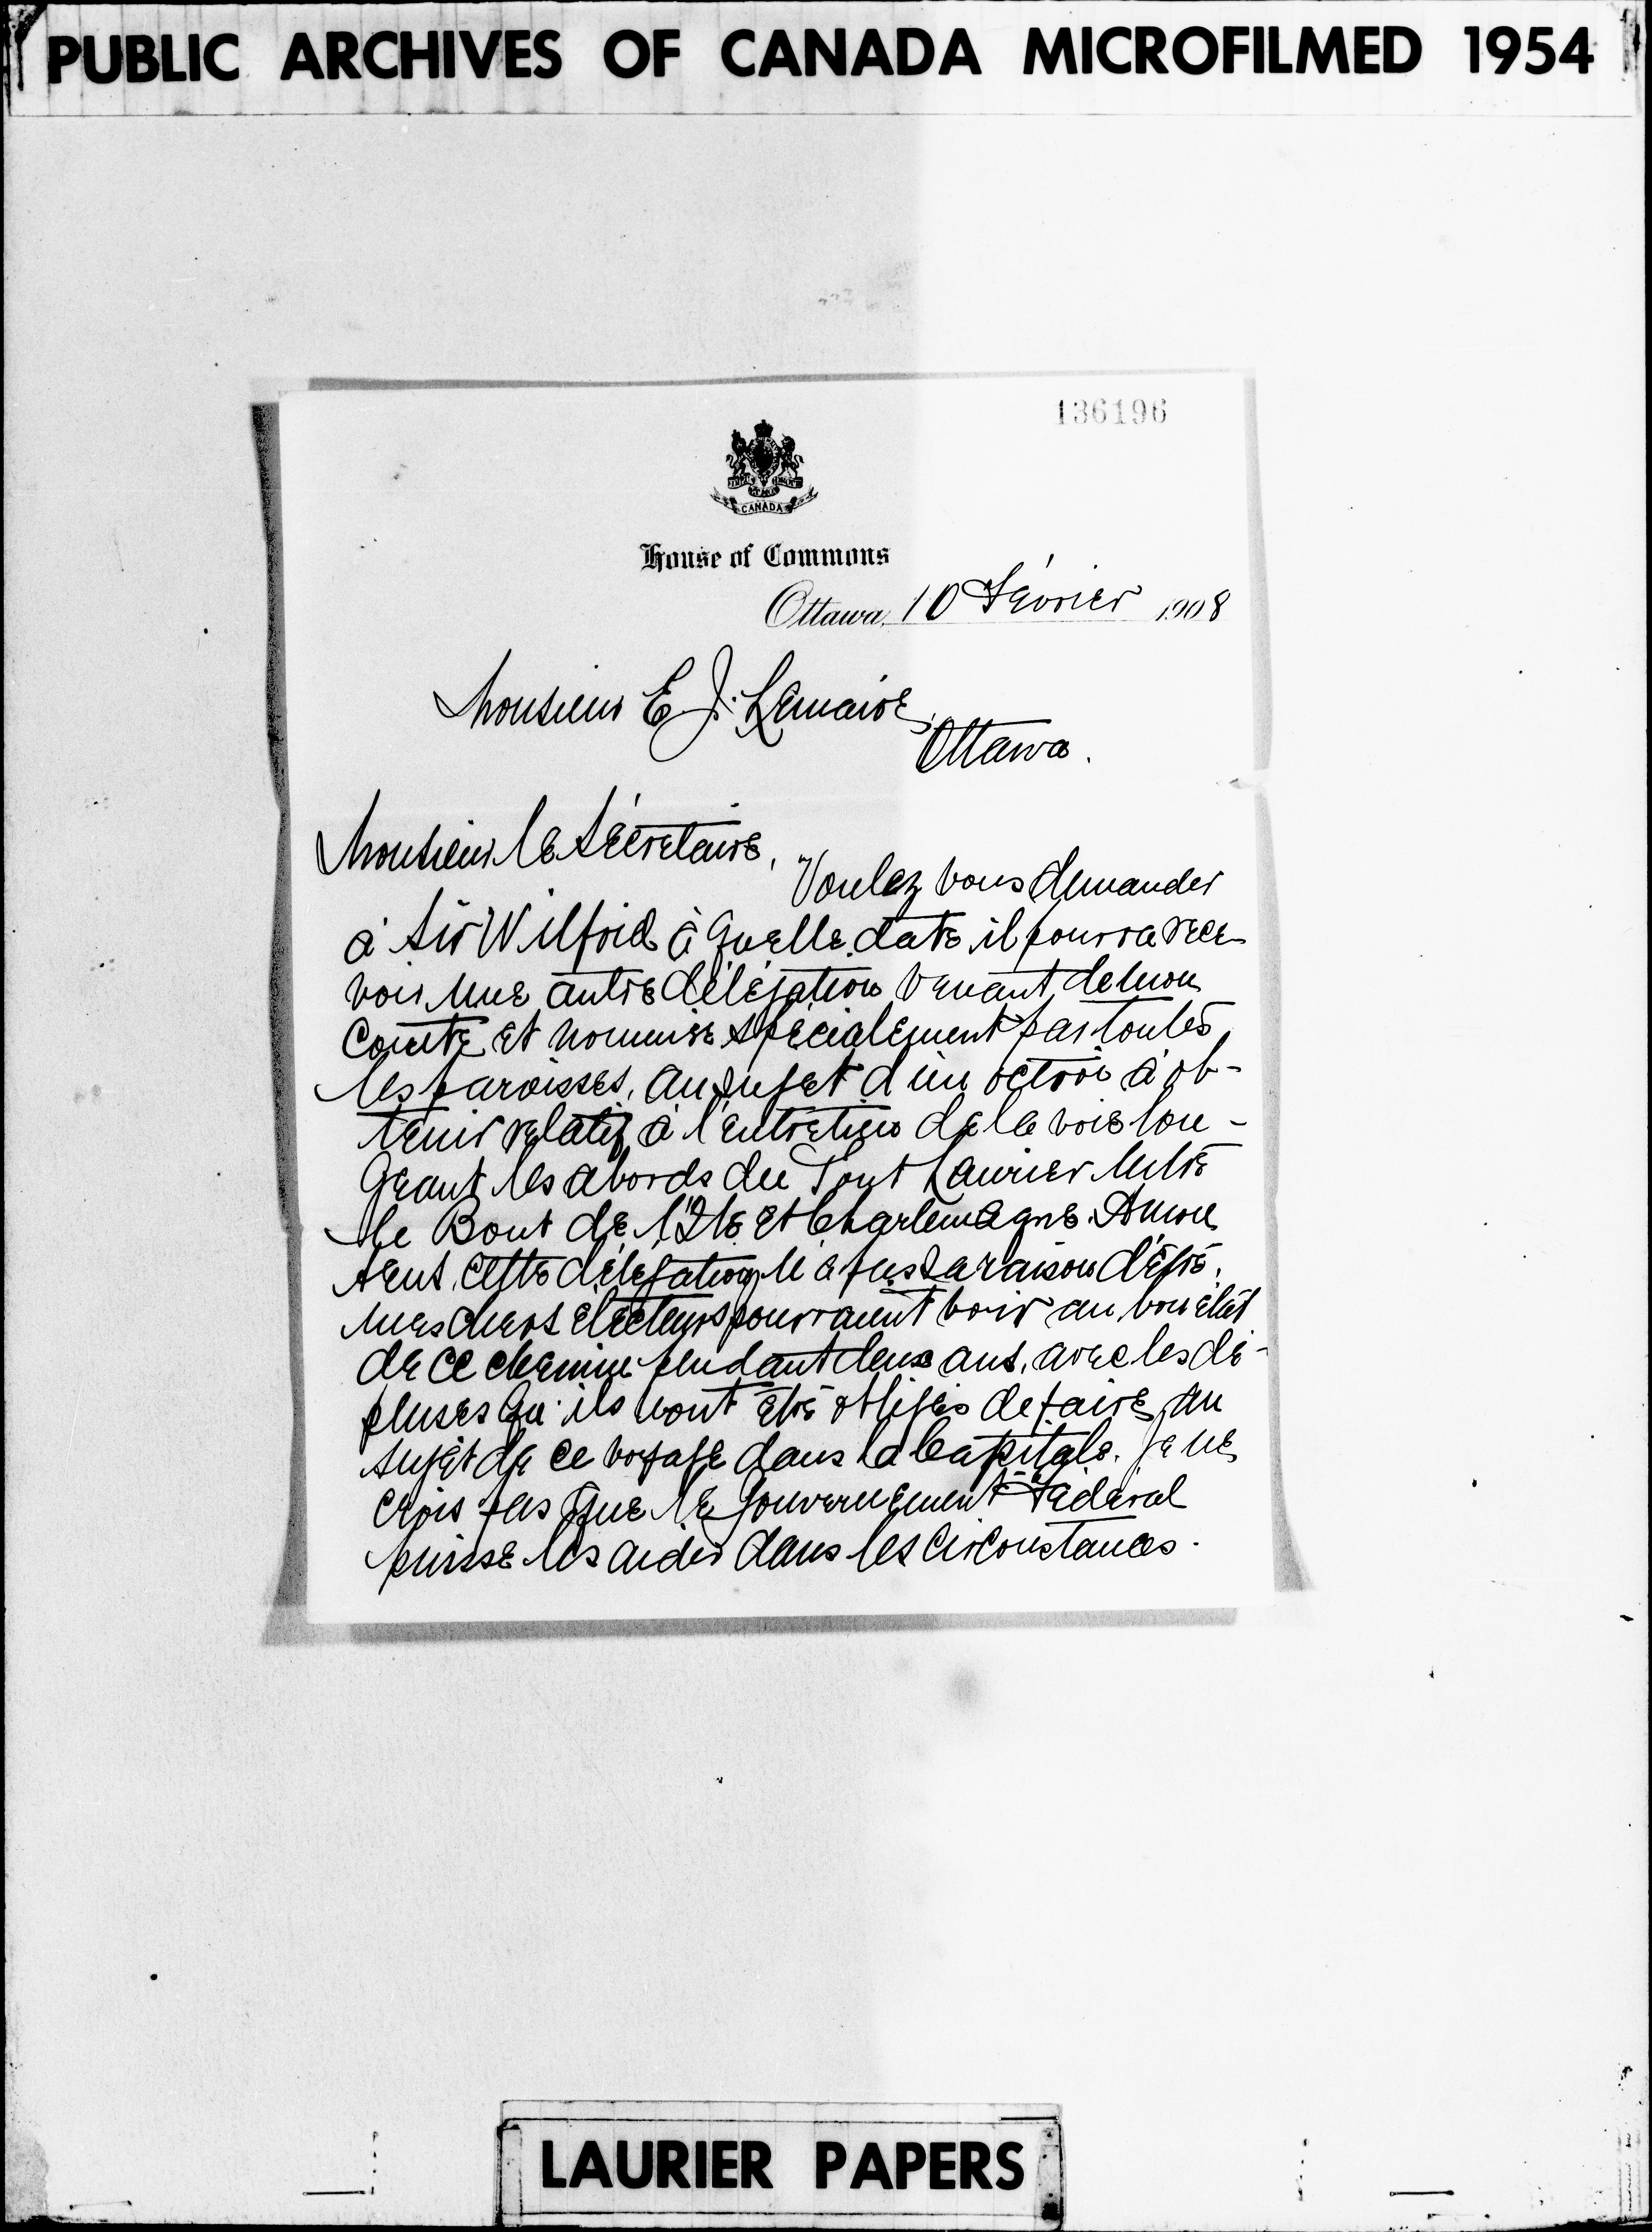 PUBLIC ARCHIVES OF CANADA MICROFILMED 1954
136196
CANADA
House of Commons
Ottawa, 10 Février 1908
Monsieur E J. Lemaire,
Ottawa.
Monsieur le Sécretaire,
Voulez vous demander
à Sir Wilfrid à quelle date il pourra rece-
voir une autre délégation venant de mon
Comté et nommée spécialement par toutes
les paroisses, au sujet d'un octroi à ob-
tenir relatif à l'entretien de la voie lon-
geant les abords du Pont Laurier entre
le Bout de l'Ile et Charlemagne. A mon
sens, cette délégation n'a pas sa raison d'être.
Mes chers électeurs pourraient voir au bon état
de ce chemin pendant deux ans, avec les dé-
penses qu'ils vont être obligés de faire, au
sujet de ce voyage dans la Capitale. Je ne
crois pas que le Gouvernement Fédéral
puisse les aider dans les circonstances.
LAURIER PAPERS